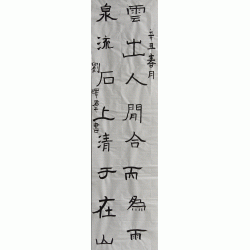 辛丑春月
雲出人間合而為雨
泉流石上清于在山
劉
書